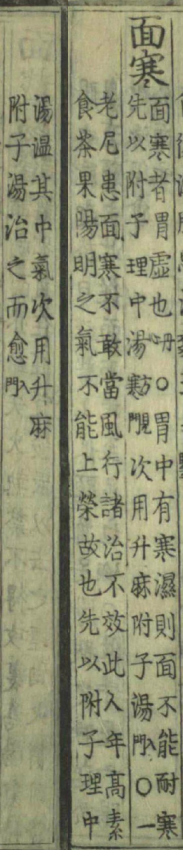 面寒
面寒者胃虛也心丹○胃中有寒濕則面不能耐寒
先以附子理中湯方見寒門次用升麻附子湯入門○一
老尼患面寒不敢當風行諸治不效此人年高素
食茶果陽明之氣不能上榮故也先以附子理中
湯溫其中氣次用升麻
附子湯治之而愈入門